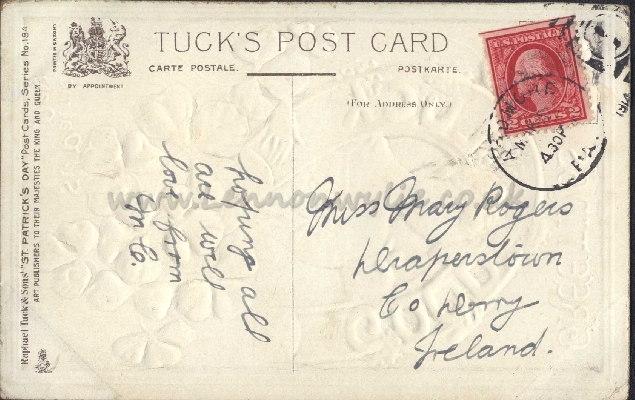 TUCK'S POST CARD
CARTE POSTALE.
POSTKARTE.
BY APPOINTMENT
(FOR ADDRESS ONLY.)
Raphael Tuck & Sons' "ST. PATRICK'S DAY" Post Cards, Series No. 184
ART PUBLISHERS TO THEIR MAJESTIES THE KING AND QUEEN.
U.S. POSTAGE
2 CENTS 2
430P
PA.
hoping all
are well
love from
Miss Mary Rogers
Draperstown
Co Derry
Ireland.